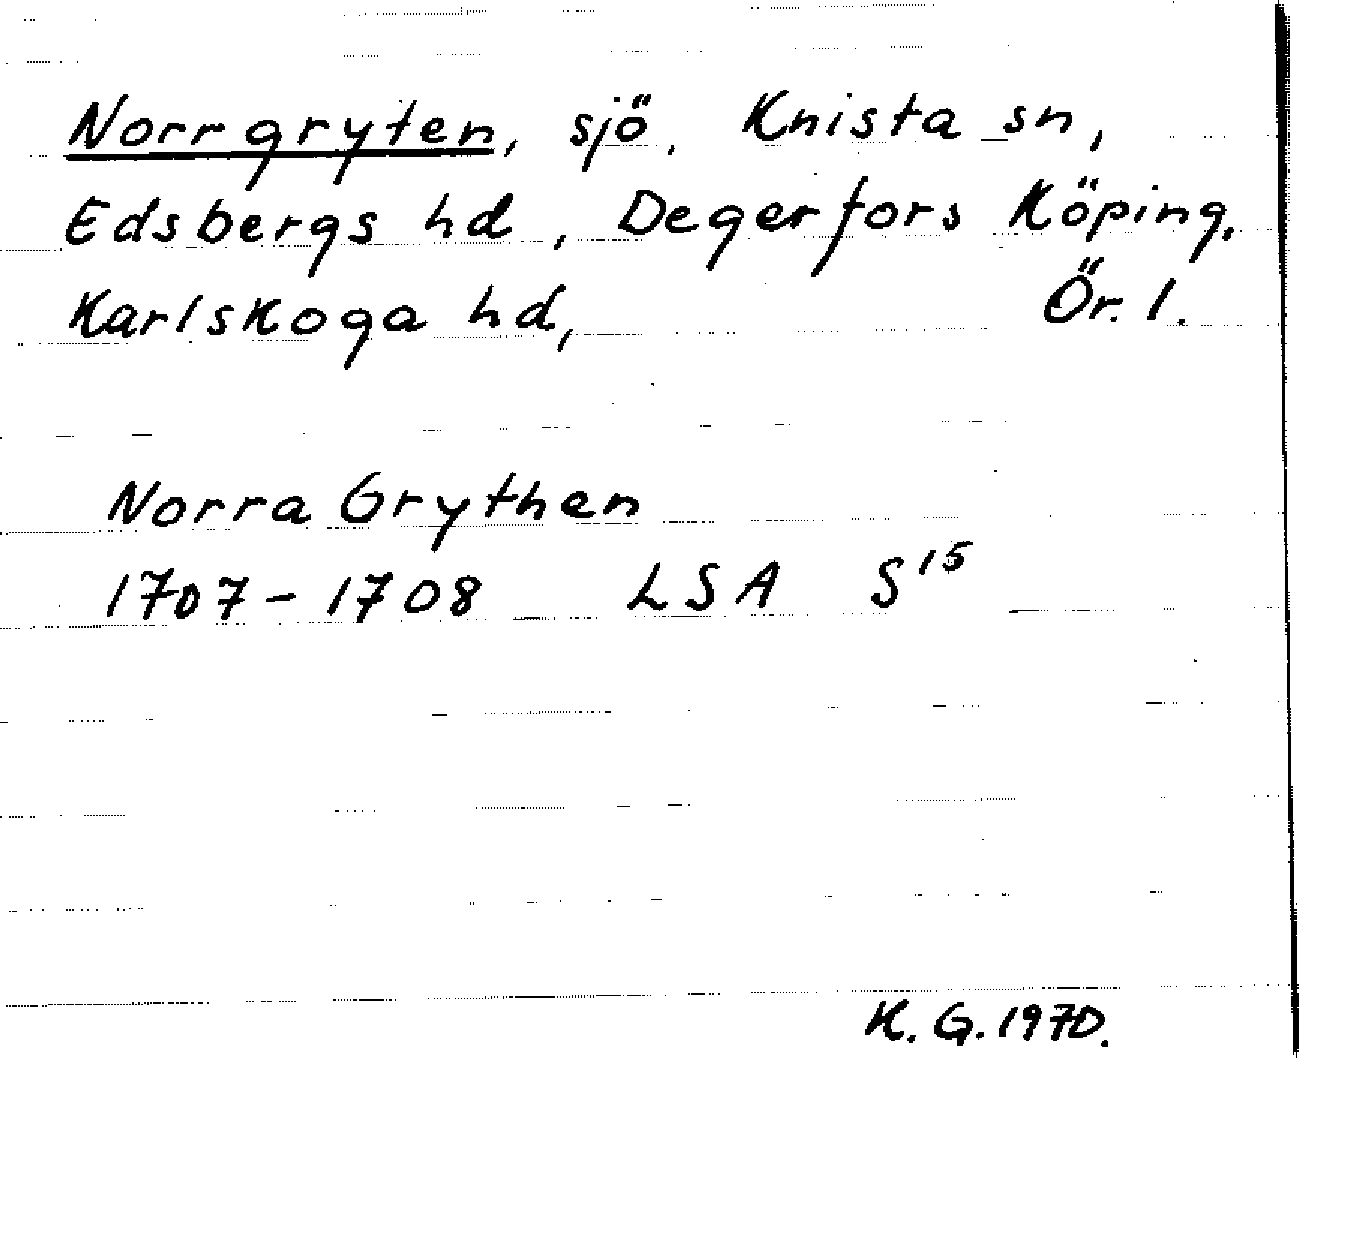 Norrgryten, sjö. Knista sn,
Edsbergs hd, Degerfors Köping.
Karlskoga hd, Ör. l.
Norra Grythen
1707-1708 LSA S15
K. G. 1970.